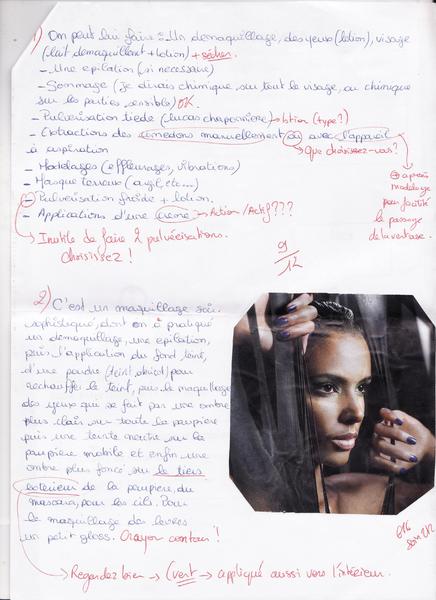 1) On peut lui faire : Un demaquillage, des yeux (lotion), visage
(lait demaquillant + lotion) + sécher.
- Une epilation (si necessaire)
- Gommage (je dirais chimique sur tout le visage, ou chimique
sur les parties sensible) OK
- Pulverisation tiede (lucas championniere) → lotion (type?)
- Extractions des comedons manuellement ou avec l'appareil
à aspiration
→ Que choisissez-vous?
- Modelages (effleurages, vibrations)
- Masque terreux (argil, etc...)
- Pulverisation froide + lotion.
- Applications d'une creme → Action / Actif ???
→ Inutile de faire 2 pulvérisations.
Choisissez !
après
modelage
pour facilité
le passage
de la ventouse.
9/12
2) C'est un maquillage soir
sophistiqué, dont on à pratiqué
un démaquillage, une epilation,
puis l'application du fond teint,
d'une poudre (teint abricot) pour
rechauffer le teint, puis le maquillage
des yeux qui se fait par une ombre
plus clair sur toute la paupière
puis une teinte neutre sur la
paupière mobile et enfin une
ombre plus foncé sur le tiers
exterieur de la paupiere, du
mascara, pour les cils. Pour
le maquillage des levres
un petit gloss. Crayon contour !
→ Regardez bien → (vert → appliqué aussi vers l'intérieur.